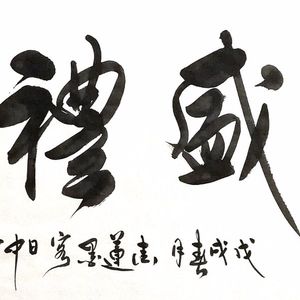 盛禮
戊戌春月蓮墨客日中